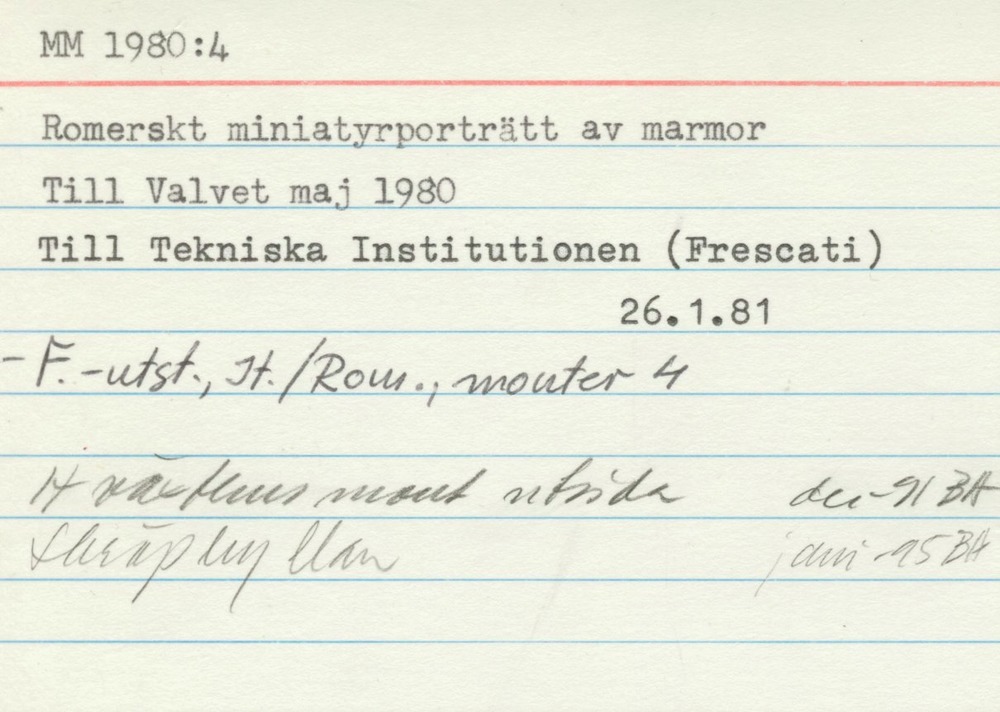 MM 1980:4
Romerskt miniatyrporträtt av marmor
Till Valvet maj 1980
Till Tekniska Institutionen (Frescati)
26.1.81
- F.-utst., It./Rom., monter 4
växthus mont utsida dec-91 BA
Skräphyllan juni -95 BA